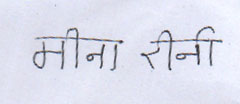 मीना रीनी